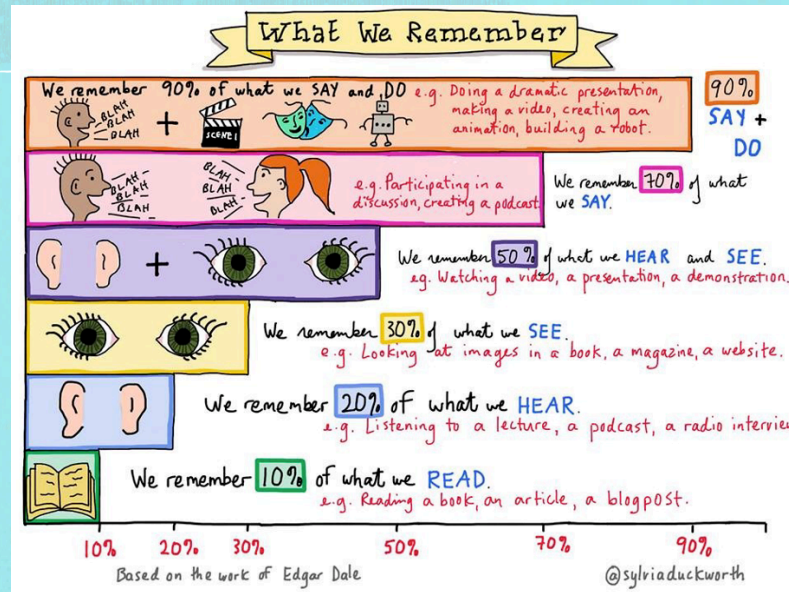 What We Remember
We remember 90% of what we SAY and DO e.g. Doing a dramatic presentation,
making a video, creating an
animation, building a robot.
BLAH
BLAH
BLAH
+
SCENE 1
90%
SAY +
DO
BLAH
BLAH
BLAH
BLAH
BLAH
BLAH
BLAH
e.g. Participating in a
discussion, creating a podcast.
We remember 70% of what
we SAY.
+
We remember 50% of what we HEAR and SEE.
eg. Watching a video, a presentation, a demonstration.
We remember 30% of what we SEE.
e.g. Looking at images in a book, a magazine, a website.
We remember 20% of what we HEAR.
e.g. Listening to a lecture, a podcast, a radio interview
We remember 10% of what we READ.
e.g. Reading a book, an article, a blogpost.
10% 20% 30% 50% 70% 90%
Based on the work of Edgar Dale
@sylviaduckworth